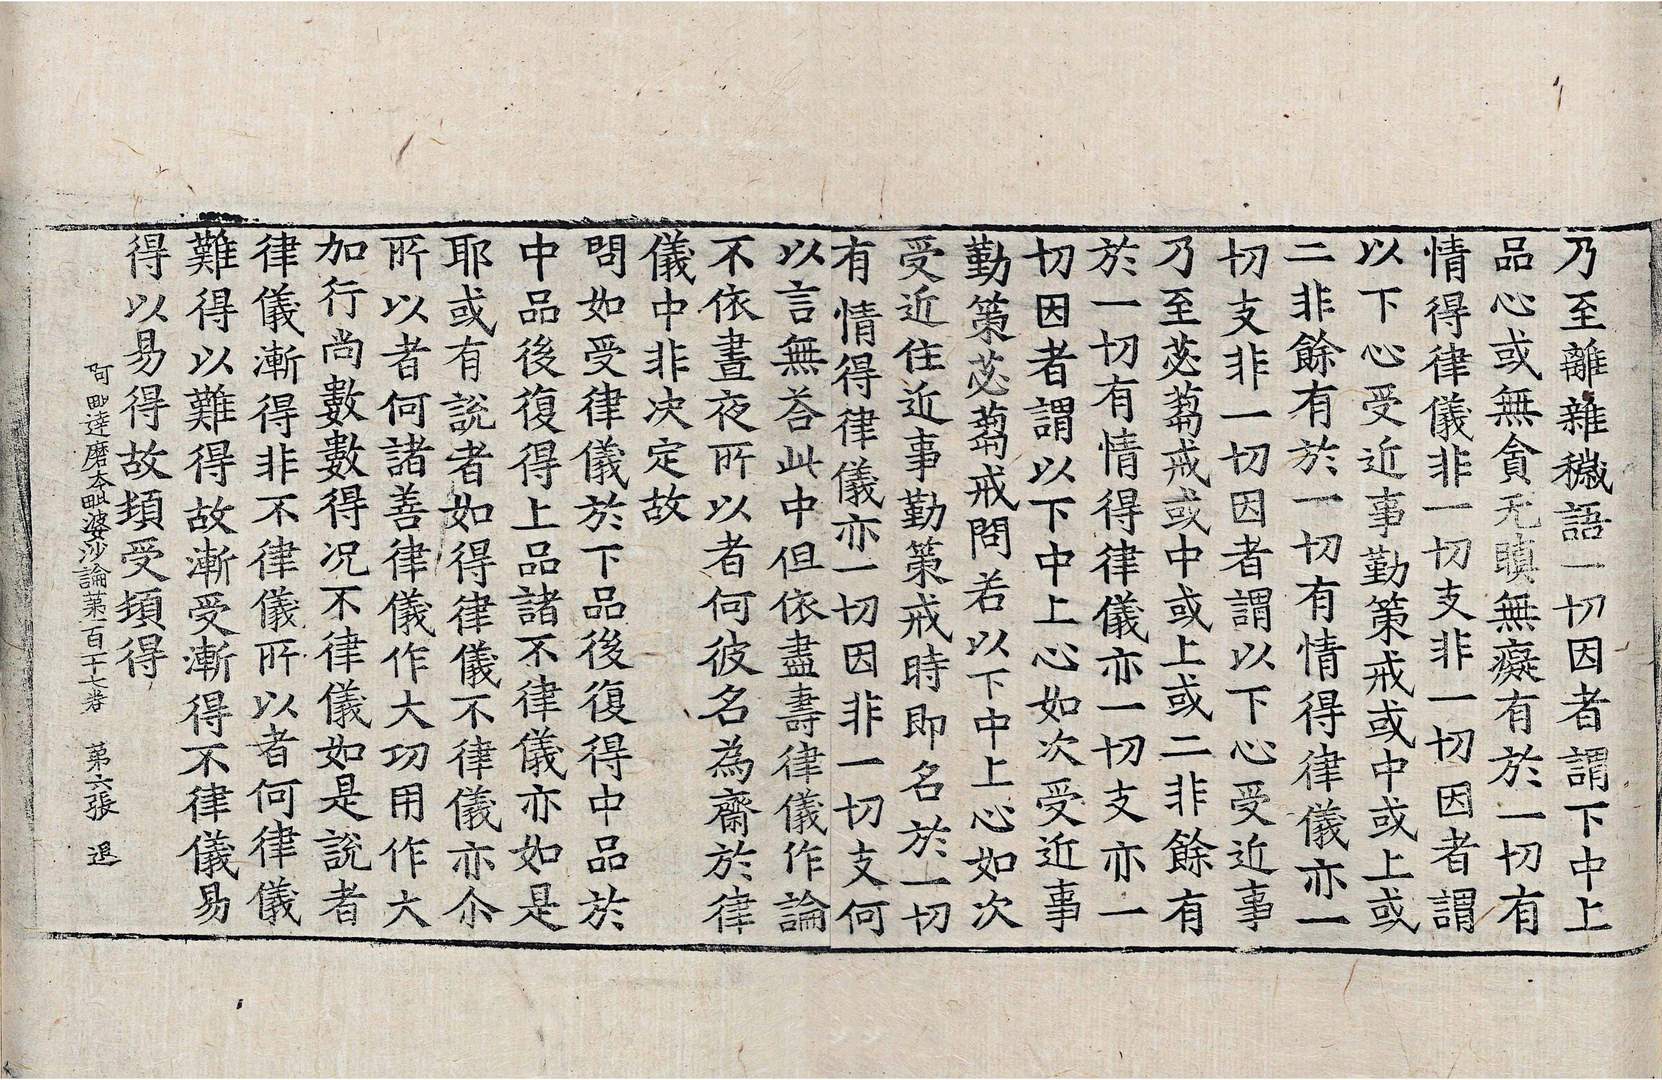 乃至離雜穢語一切因者謂下中上
品心或無貪无瞋無癡有於一切有
情得律儀非一切支非一切因者謂
以下心受近事勤策戒或中或上或
二非餘有於一切有情得律儀亦一
切支非一切因者謂以下心受近事
乃至苾蒭戒或中或上或二非餘有
於一切有情得律儀亦一切支亦一
切因者謂以下中上心如次受近事
勤策苾蒭戒問若以下中上心如次
受近住近事勤策戒時即名於一切
有情得律儀亦一切因非一切支何
以言無荅此中但依盡壽律儀作論
不依晝夜所以者何彼名為齋於律
儀中非决定故
問如受律儀於下品後復得中品於
中品後復得上品諸不律儀亦如是
耶或有說者如得律儀不律儀亦尒
所以者何諸善律儀作大功用作大
加行尚數數得况不律儀如是說者
律儀漸得非不律儀所以者何律儀
難得以難得故漸受漸得不律儀易
得以易得故頓受頓得
阿毗達磨大毗婆沙論第一百十七卷 第六張 退